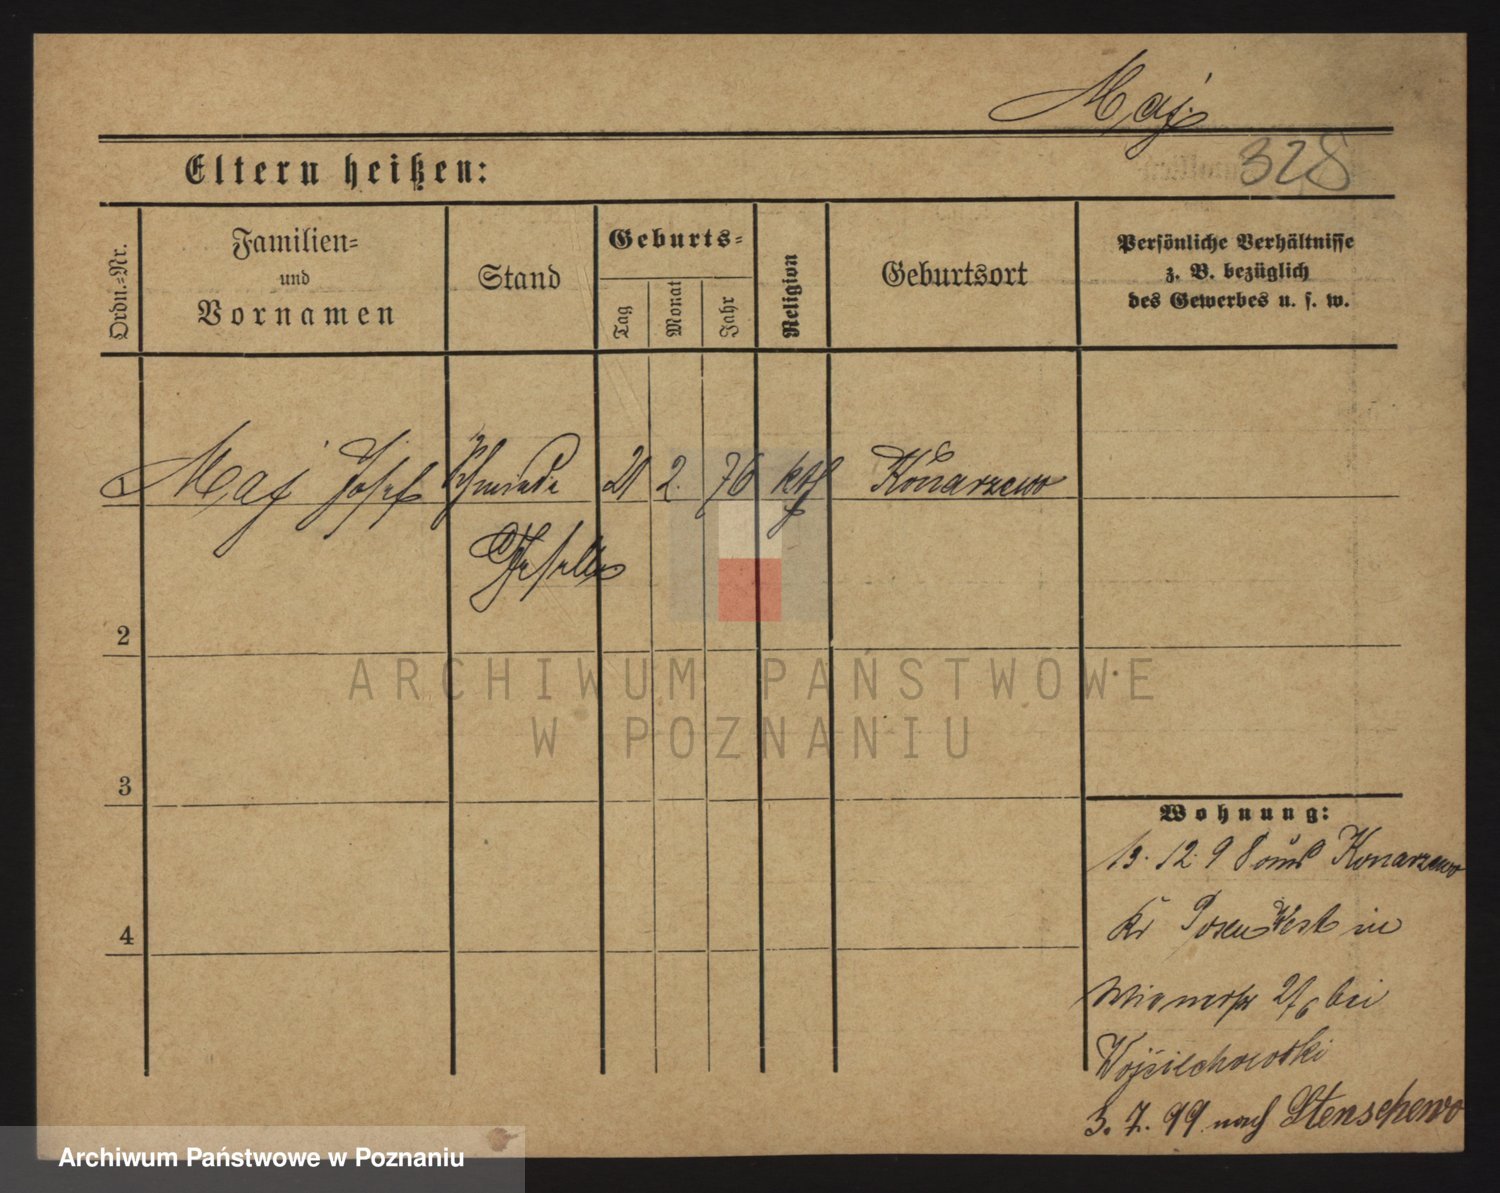 Maj
328
Eltern heißen:
Ordn.-Nr.
Familien-
und
Vornamen
Stand
Geburts-
Tag
Monat
Jahr
Religion
Geburtsort
Persönliche Verhältnisse
z. B. bezüglich
des Gewerbes u. s. w.
Maj Josef Schmiede 21 2. 76 kth Konarzewo
Geselle
2
3
4
Wohnung:
13. 12. 98 aus Konarzewo
Kr Posen West in
bei
Wojciechowski
3. 7. 99 nach Stenschewo
ARCHIWUM PAŃSTWOWE
W POZNANIU
Archiwum Państwowe w Poznaniu